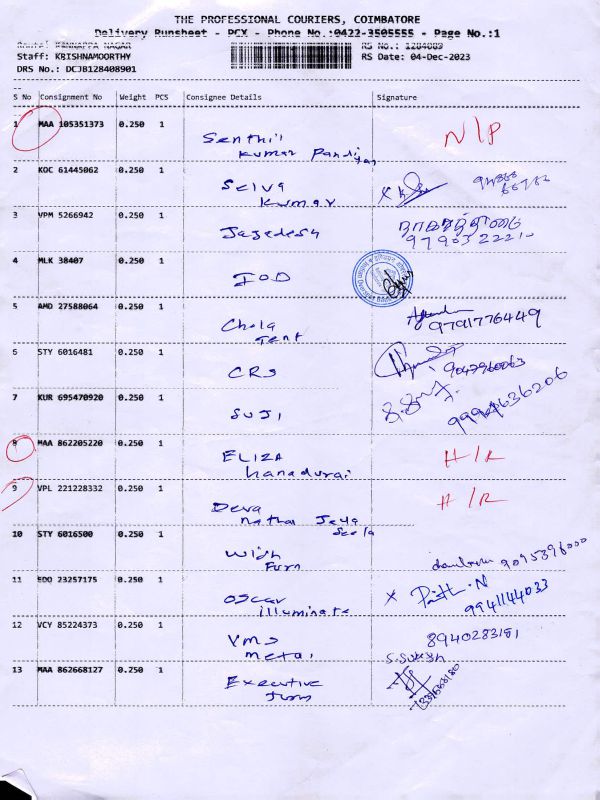 THE PROFESSIONAL COURIERS, COIMBATORE
Delivery Runsheet - PCX - Phone No.:0422-3505555 - Page No.:1
KANNAPPA NAGAR RS No.: 1284089
Staff: KRISHNAMOORTHY RS Date: 04-Dec-2023
DRS No.: DCJB128408901
S No Consignment No Weight PCS Consignee Details Signature
1 MAA 105351373 0.250 1 N/P
Senthil
Kumar Pandiyan
2 KOC 61445062 0.250 1
Selva
Kumar
3 VPM 5266942 0.250 1
Jagedesh
4 MLK 38407 0.250 1
IOD
5 AMD 27588064 0.250 1
Chola 9791776449
Tent
6 STY 6016481 0.250 1
CRS 9047960063
7 KUR 695470920 0.250 1
SUJI
8 MAA 862205220 0.250 1
ELIZA H/R
hanadurai
9 VPL 221228332 0.250 1 H/R
Deva
natha Jeya
Seela
10 STY 6016500 0.250 1
Widh 9095396000
Furn
11 EDO 23257175 0.250 1
Oscar
illuminate 9941144033
12 VCY 85224373 0.250 1
VMS 8940283181
metal S.Suresh
13 MAA 862668127 0.250 1
Executive